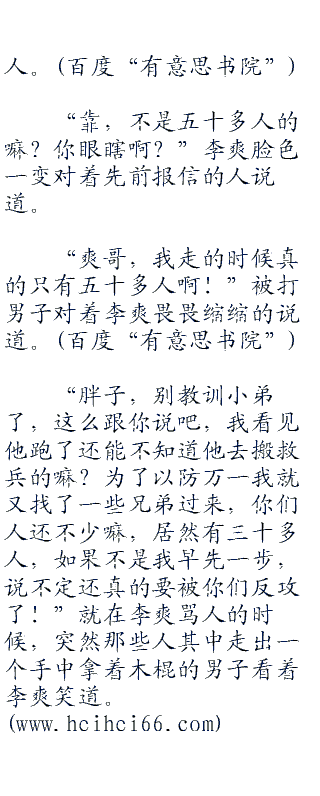 人。(百度“有意思书院”)
“靠，不是五十多人的
嘛？你眼瞎啊？”李爽脸色
一变对着先前报信的人说
道。
“爽哥，我走的时候真
的只有五十多人啊！”被打
男子对着李爽畏畏缩缩的说
道。(百度“有意思书院”)
“胖子，别教训小弟
了，这么跟你说吧，我看见
他跑了还能不知道他去搬救
兵的嘛？为了以防万一我就
又找了一些兄弟过来，你们
人还不少嘛，居然有三十多
人，如果不是我早先一步，
说不定还真的要被你们反攻
了！”就在李爽骂人的时
候，突然那些人其中走出一
个手中拿着木棍的男子看着
李爽笑道。
(www.hcihci66.com)